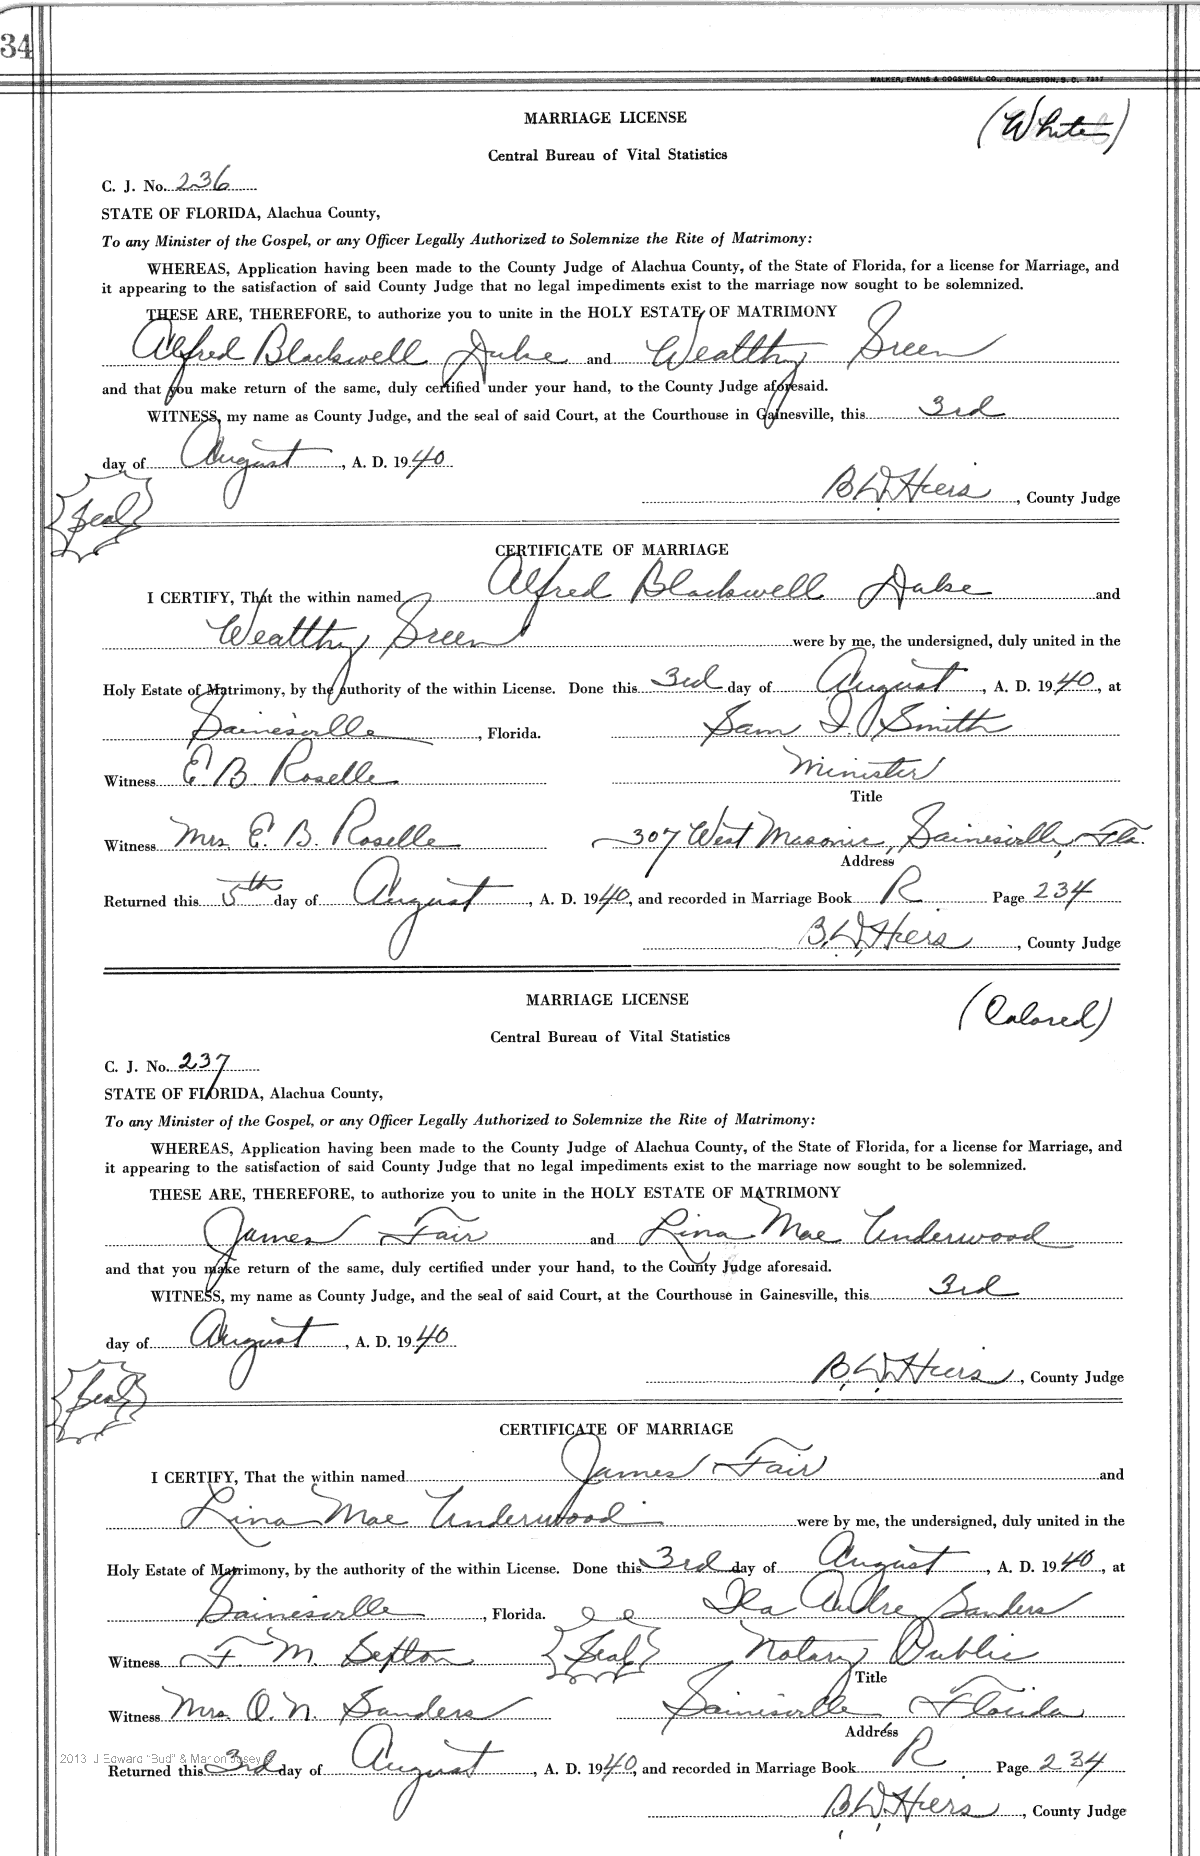 34
WALKER, EVANS & COGSWELL CO., CHARLESTON, S. C. 7337
MARRIAGE LICENSE
(White)
Central Bureau of Vital Statistics
C. J. No. 236
STATE OF FLORIDA, Alachua County,
To any Minister of the Gospel, or any Officer Legally Authorized to Solemnize the Rite of Matrimony:
WHEREAS, Application having been made to the County Judge of Alachua County, of the State of Florida, for a license for Marriage, and
it appearing to the satisfaction of said County Judge that no legal impediments exist to the marriage now sought to be solemnized.
THESE ARE, THEREFORE, to authorize you to unite in the HOLY ESTATE OF MATRIMONY
Alfred Blackwell Duke and Wealthy Green
and that you make return of the same, duly certified under your hand, to the County Judge aforesaid.
WITNESS, my name as County Judge, and the seal of said Court, at the Courthouse in Gainesville, this 3rd
day of August, A. D. 1940
B. D. Hiers, County Judge
Seal
CERTIFICATE OF MARRIAGE
I CERTIFY, That the within named Alfred Blackwell Duke and
Wealthy Green were by me, the undersigned, duly united in the
Holy Estate of Matrimony, by the authority of the within License. Done this 3rd day of August, A. D. 1940, at
Gainesville, Florida. Sam I. Smith
Witness E B Roselle Minister
Title
Witness Mrs. E. B. Roselle 307 West Masonic, Gainesville, Fla.
Address
Returned this 5th day of August, A. D. 1940, and recorded in Marriage Book R Page 234
B. D. Hiers, County Judge
MARRIAGE LICENSE
(Colored)
Central Bureau of Vital Statistics
C. J. No. 237
STATE OF FLORIDA, Alachua County,
To any Minister of the Gospel, or any Officer Legally Authorized to Solemnize the Rite of Matrimony:
WHEREAS, Application having been made to the County Judge of Alachua County, of the State of Florida, for a license for Marriage, and
it appearing to the satisfaction of said County Judge that no legal impediments exist to the marriage now sought to be solemnized.
THESE ARE, THEREFORE, to authorize you to unite in the HOLY ESTATE OF MATRIMONY
James Fair and Lina Mae Underwood
and that you make return of the same, duly certified under your hand, to the County Judge aforesaid.
WITNESS, my name as County Judge, and the seal of said Court, at the Courthouse in Gainesville, this 3rd
day of August, A. D. 1940
B. D. Hiers, County Judge
Seal
CERTIFICATE OF MARRIAGE
I CERTIFY, That the within named James Fair and
Lina Mae Underwood were by me, the undersigned, duly united in the
Holy Estate of Matrimony, by the authority of the within License. Done this 3rd day of August, A. D. 1940, at
Gainesville, Florida. Ila Andre Sanders
Witness F. M. Sefton Seal Notary Public
Title
Witness Mrs. O. N. Sanders Gainesville Florida
Address
2013 J Edward "Bud" & Marion Josey
Returned this 3rd day of August, A. D. 1940, and recorded in Marriage Book R Page 234
B. D. Hiers, County Judge